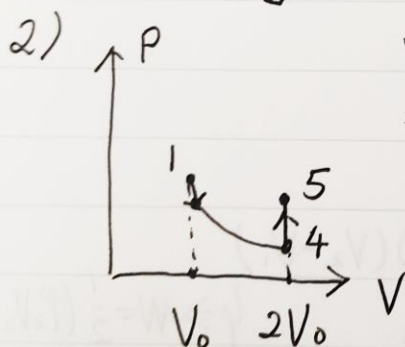 2)
P
1
5
4
V
V₀
2V₀